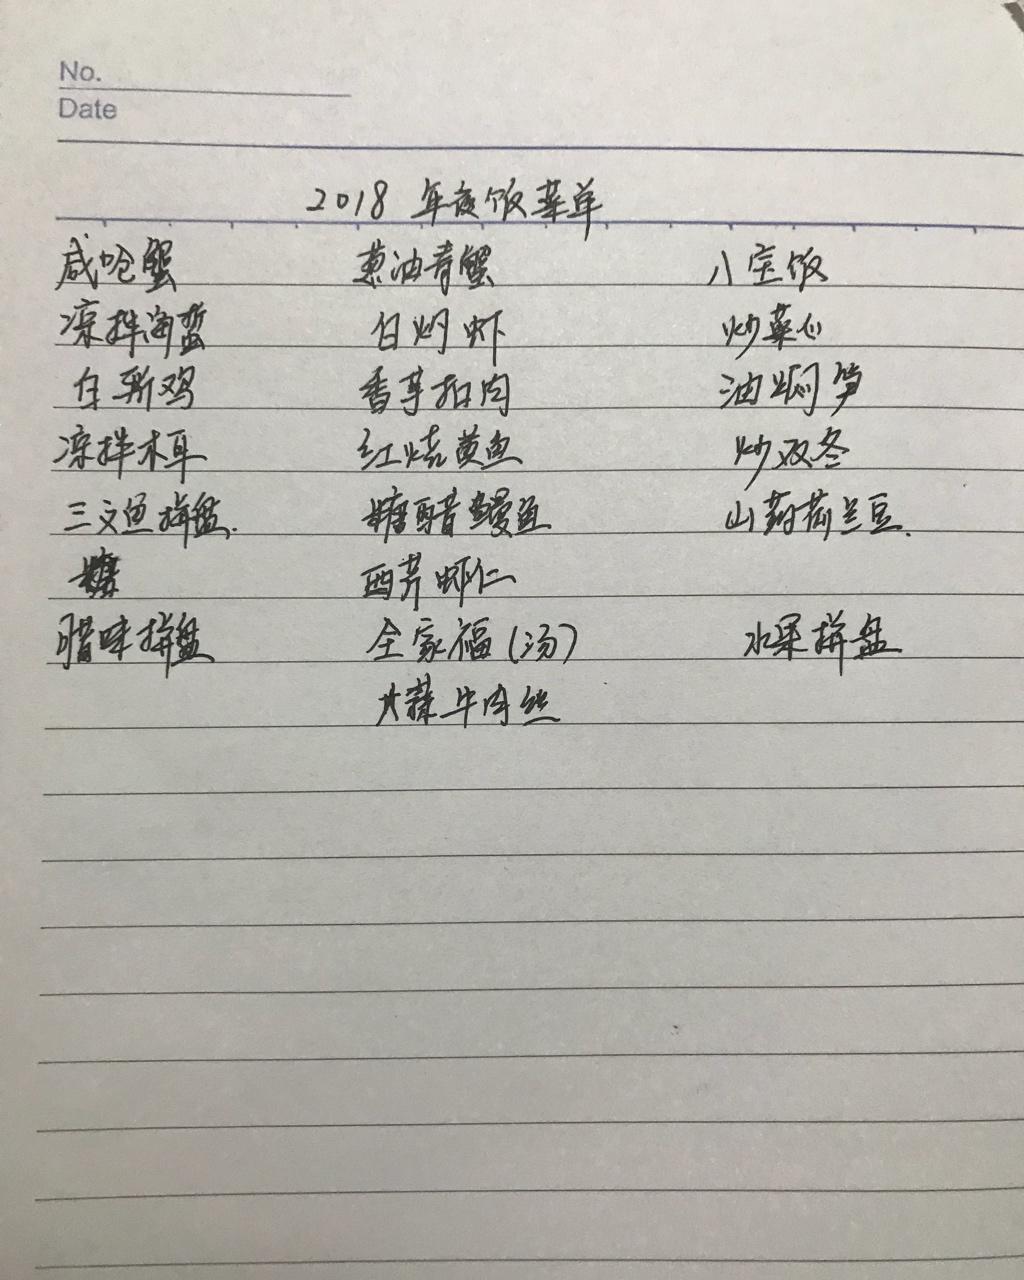 No.
Date
2018 年夜饭菜单
咸呛蟹 葱油青蟹 八宝饭
凉拌海蜇 白灼虾 炒菜心
白斩鸡 香芋扣肉 油焖笋
凉拌木耳 红烧黄鱼 炒双冬
三文鱼拼盘. 糖醋鳗鱼 山药荷兰豆.
西芹虾仁
腊味拼盘 全家福(汤) 水果拼盘
大蒜牛肉丝